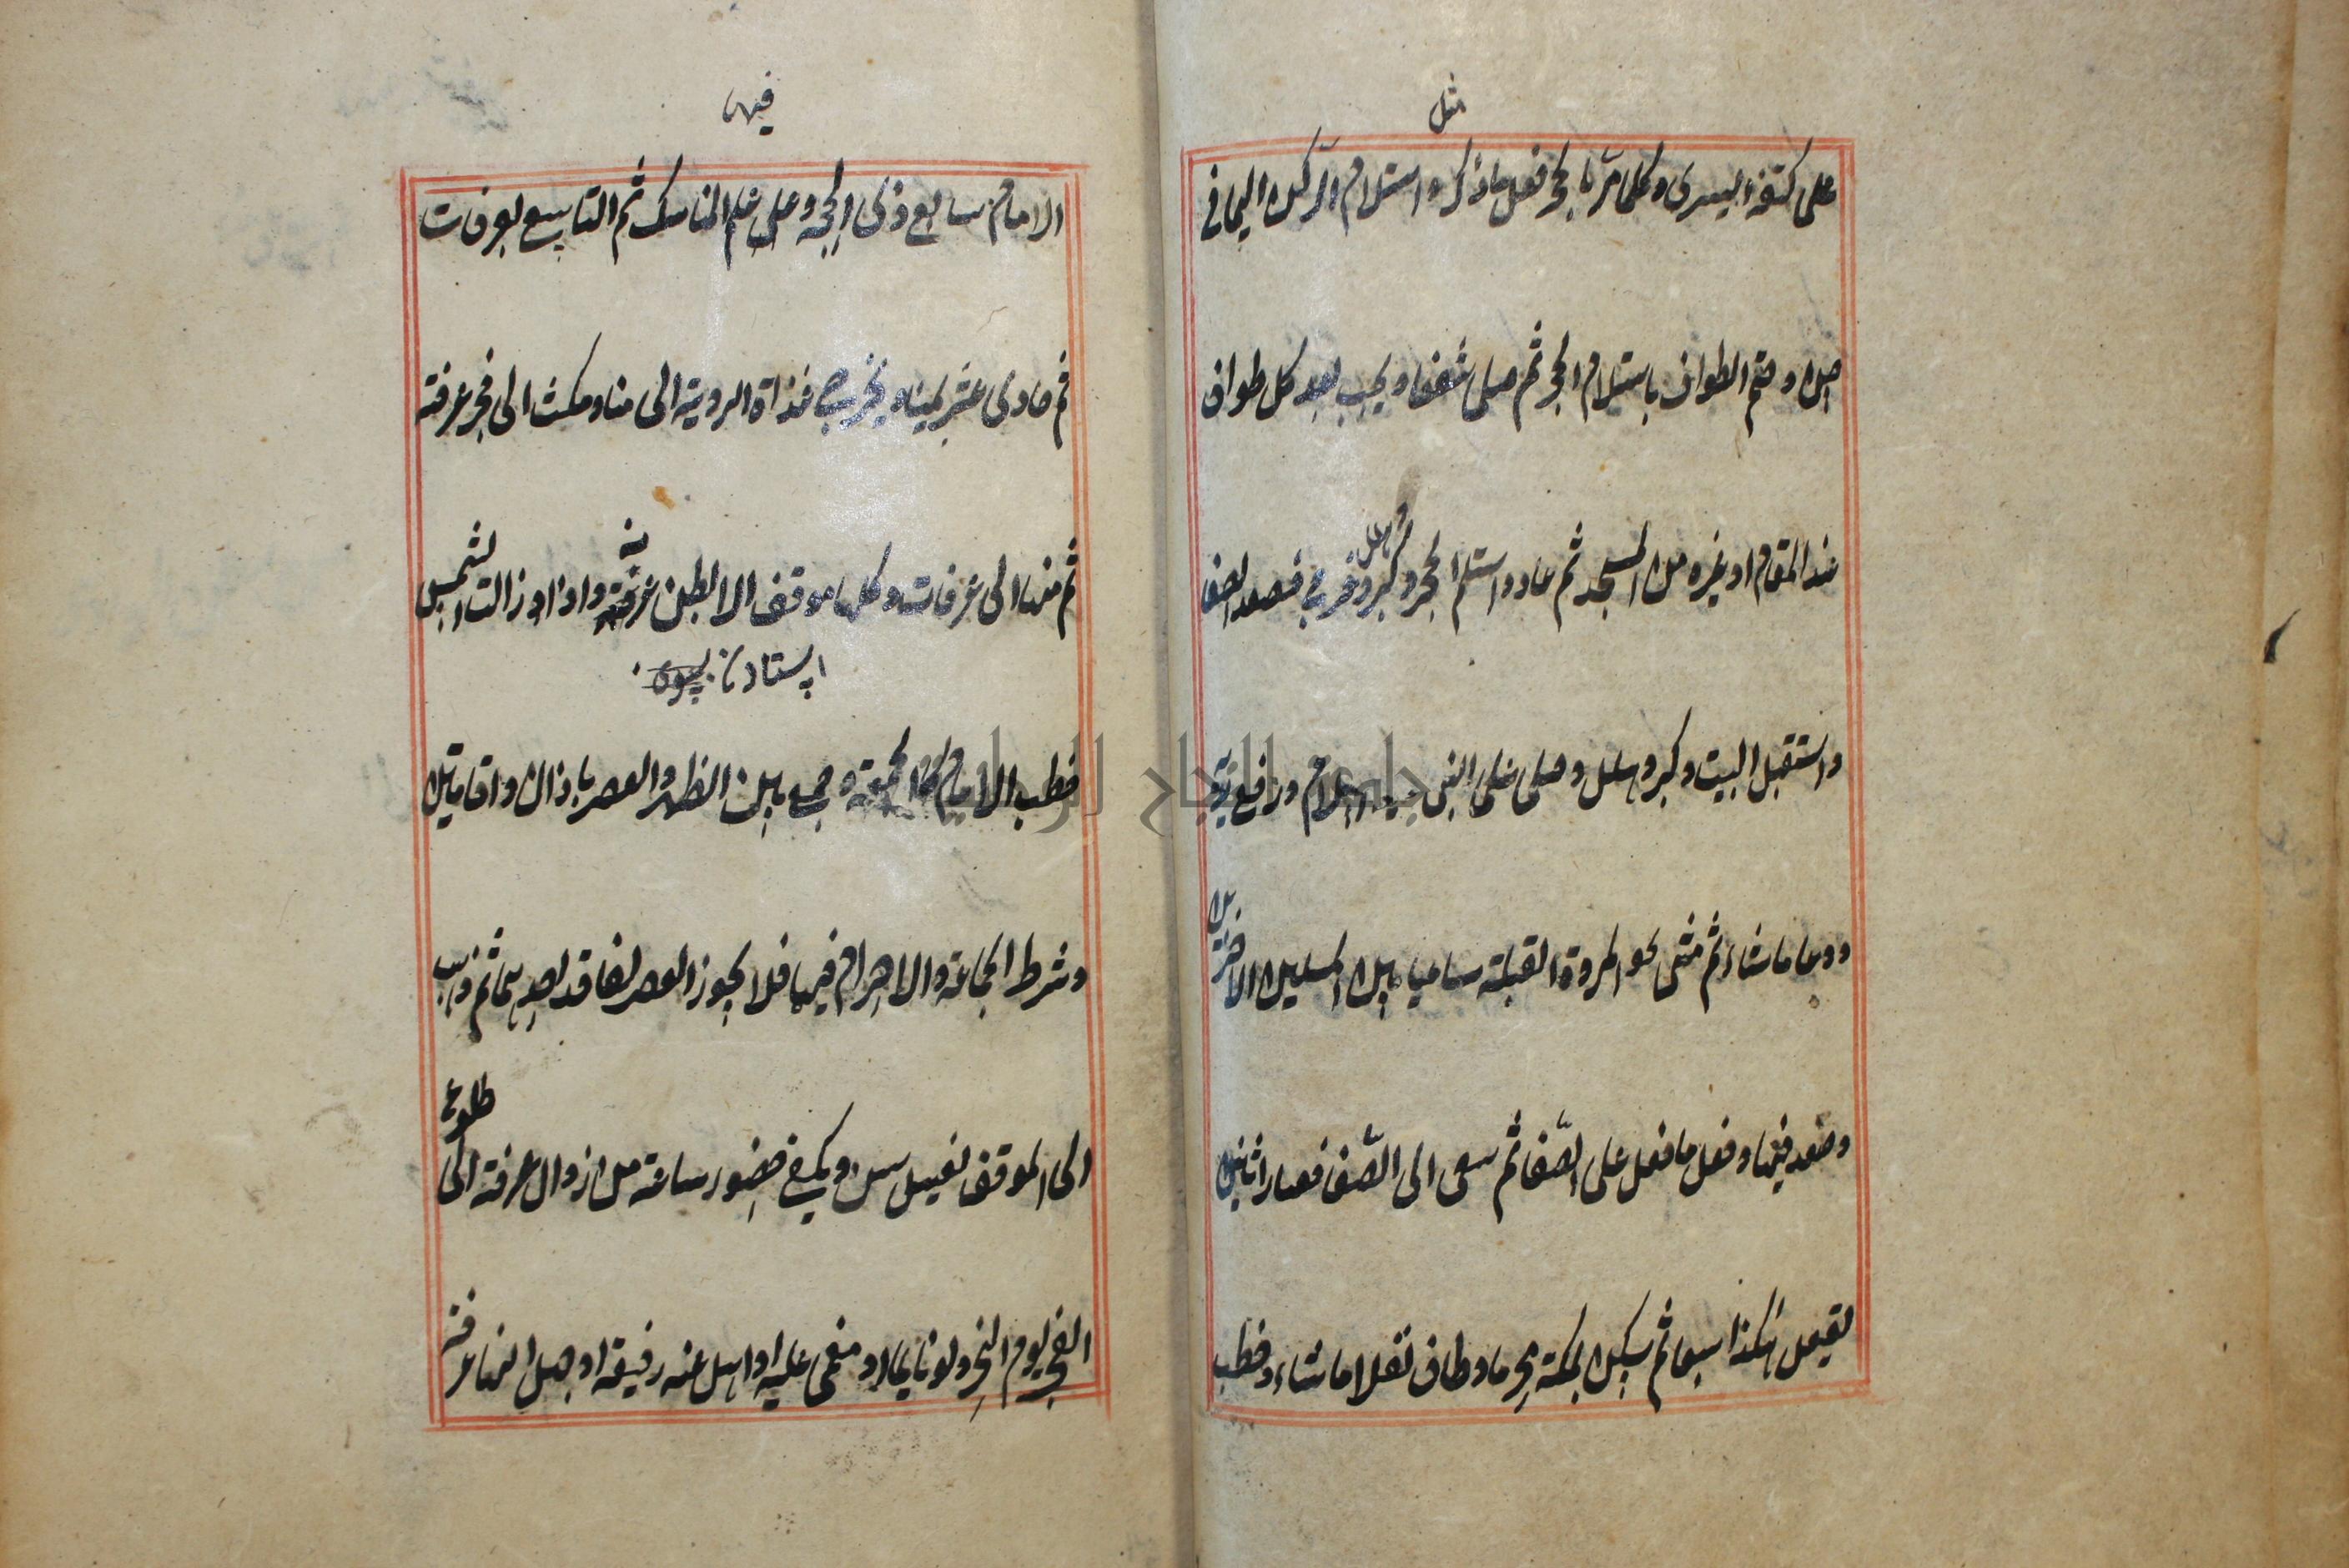 مثل
على كتفه اليسرى وكلما مرّ بالحجر فعل ما ذكر واستلام الركن اليماني
حسن وختم الطواف باستلام الحجر ثم صلى شفعا ويجب بعد كل طواف
عند المقام او غيره من المسجد ثم عاد واستلم الحجر وكبر وهلل وخرج فصعد الصفا
واستقبل البيت وكبر وهلل وصلى على النبي عليه السلام ورافع يديه
ودعا ما شاء ثم مشى نحو المروة القبلة ساعيا بين الميلين الاخضرين
وصعد فيها وفعل ما فعل على الصّفا ثم سعى الى الصّفا فصار اثنان
يفعل هكذا سبعا ثم سكن بمكة محرما وطاف نفلا ما شاء وخطب
فيها
الامام سابع ذى الحجة وعلى علم المناسك ثم التاسع بعرفات
ثم حادى عشر بمينا ويخرج غداة التروية الى منا ومكث الى فجر عرفة
ثم منها الى عرفات وكلها موقف الا بطن عرنة واذا زالت الشمس
خطب الامام كالجمعة وجمع بين الظهر والعصر باذان واقامتين
وشرط الجماعة والاحرام فيهما فلا يجوز العصر لفاقد احديهما ثم ذهب
الى الموقف بغسل سن ويكفي حضور ساعة من زوال عرفة الى طلوع
الفجر يوم النحر ولو نايما او مغمى عليه او اهل عنه رفيقه او جهل انها عرفة